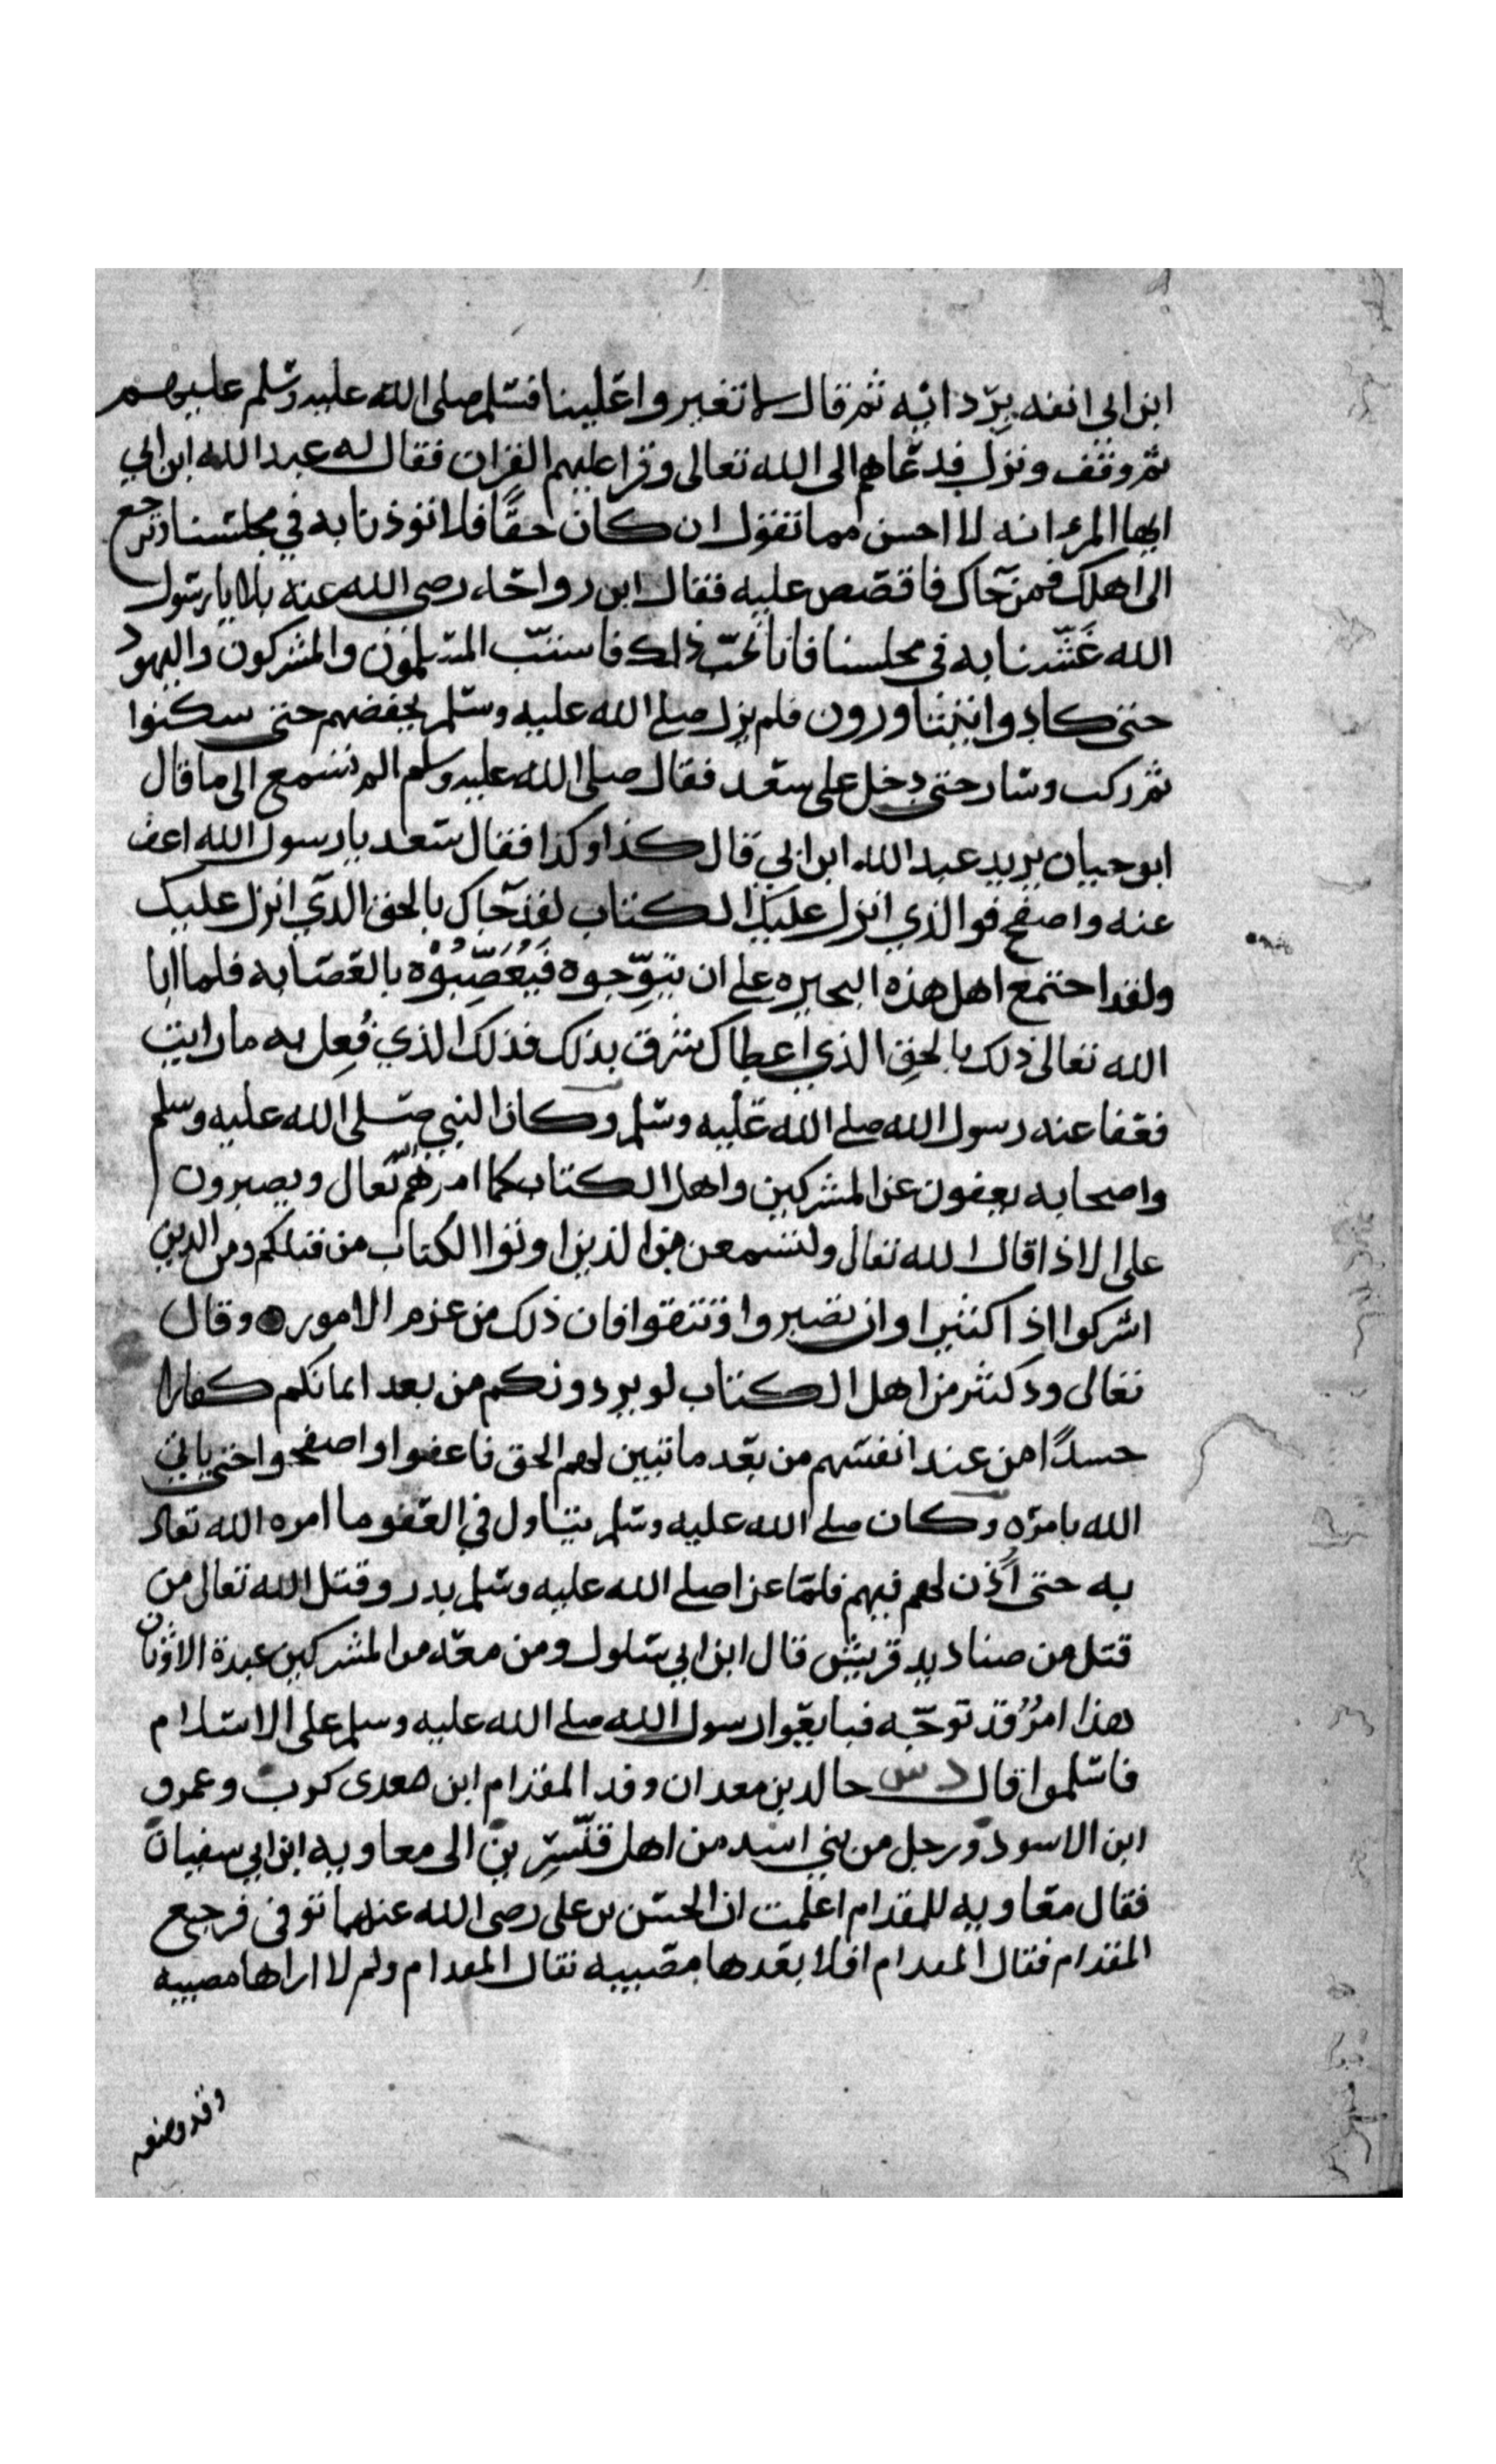 ابن ابى انفه بردائه ثم قال لا تغبروا علينا فسلم صلى الله عليه وسلم عليهم
ثم وقف ونزل فدعاهم الى الله تعالى وقرا عليهم القران فقال له عبد الله ابن ابي
ايها المرء انه لا احسن مما تقول ان كان حقًا فلا توذنا به في مجلسنا وارجع
الى اهلك فمن جاك فاقصص عليه فقال ابن رواحة رضى الله عنه بلا يا رسول
الله غَشّنا به في مجلسنا فانا نحبّ ذلك فاستبّ المسلمون والمشركون واليهود
حتى كادوا يتثاورون فلم يزل صلى الله عليه وسلم يخفضهم حتى سكنوا
ثم ركب وسار حتى دخل على سعد فقال صلى الله عليه وسلم الم تسمع الى ما قال
ابو حباب يريد عبد الله ابن ابي قال كذا وكذا فقال سعد يا رسول الله اعف
عنه واصفح فوالذي انزل عليك الكتاب لقد جاك بالحق الذي انزل عليك
ولقد اجتمع اهل هذه البحيره على ان يتوّجوه فَيُعَصِّبُوْهُ بالعصابه فلما ابا
الله تعالى ذلك بالحق الذي اعطاك شرق بذلك فذلك الذي فُعِل به ما رايت
فعفا عنه رسول الله صلى الله عليه وسلم وكان النبي صلى الله عليه وسلم
واصحابه يعفون عن المشركين واهل الكتاب كما امرهم الله تعال ويصبرون
على الاذا قال الله تعالى ولتسمعن من الذين اوتوا الكتاب من قبلكم ومن الذين
اشركوا اذا كثيرا وان تصبروا وتتقوا فان ذلك من عزم الامور وقال
تعالى ود كثير من اهل الكتاب لو يردونكم من بعد ايمانكم كفارا
حسدًا من عند انفسهم من بعد ما تبين لهم الحق فاعفوا واصفحوا حتى ياتي
الله بامره وكان صلى الله عليه وسلم يتاول في العفو ما امره الله تعالى
به حتى اُذن لهم فيهم فلما غزا صلى الله عليه وسلم بدر وقتل الله تعالى من
قتل من صناديد قريش قال ابن ابي سلول ومن معه من المشركين عبدة الاوثان
هذا امرٌ قد توجّه فبايعوا رسول الله صلى الله عليه وسلم على الاسلام
فاسلموا قال د س خالد بن معدان وفد المقدام ابن معدى كرب وعمرو
ابن الاسود ورجل من بني اسد من اهل قنّسرين الى معاويه ابن ابي سفيان
فقال معاويه للمقدام اعلمت ان الحسن بن على رضى الله عنهما توفى فرجع
المقدام فقال المقدام افلا بعدها مصيبه فقال المقدام ولم لا اراها مصيبه
وقد وضعه